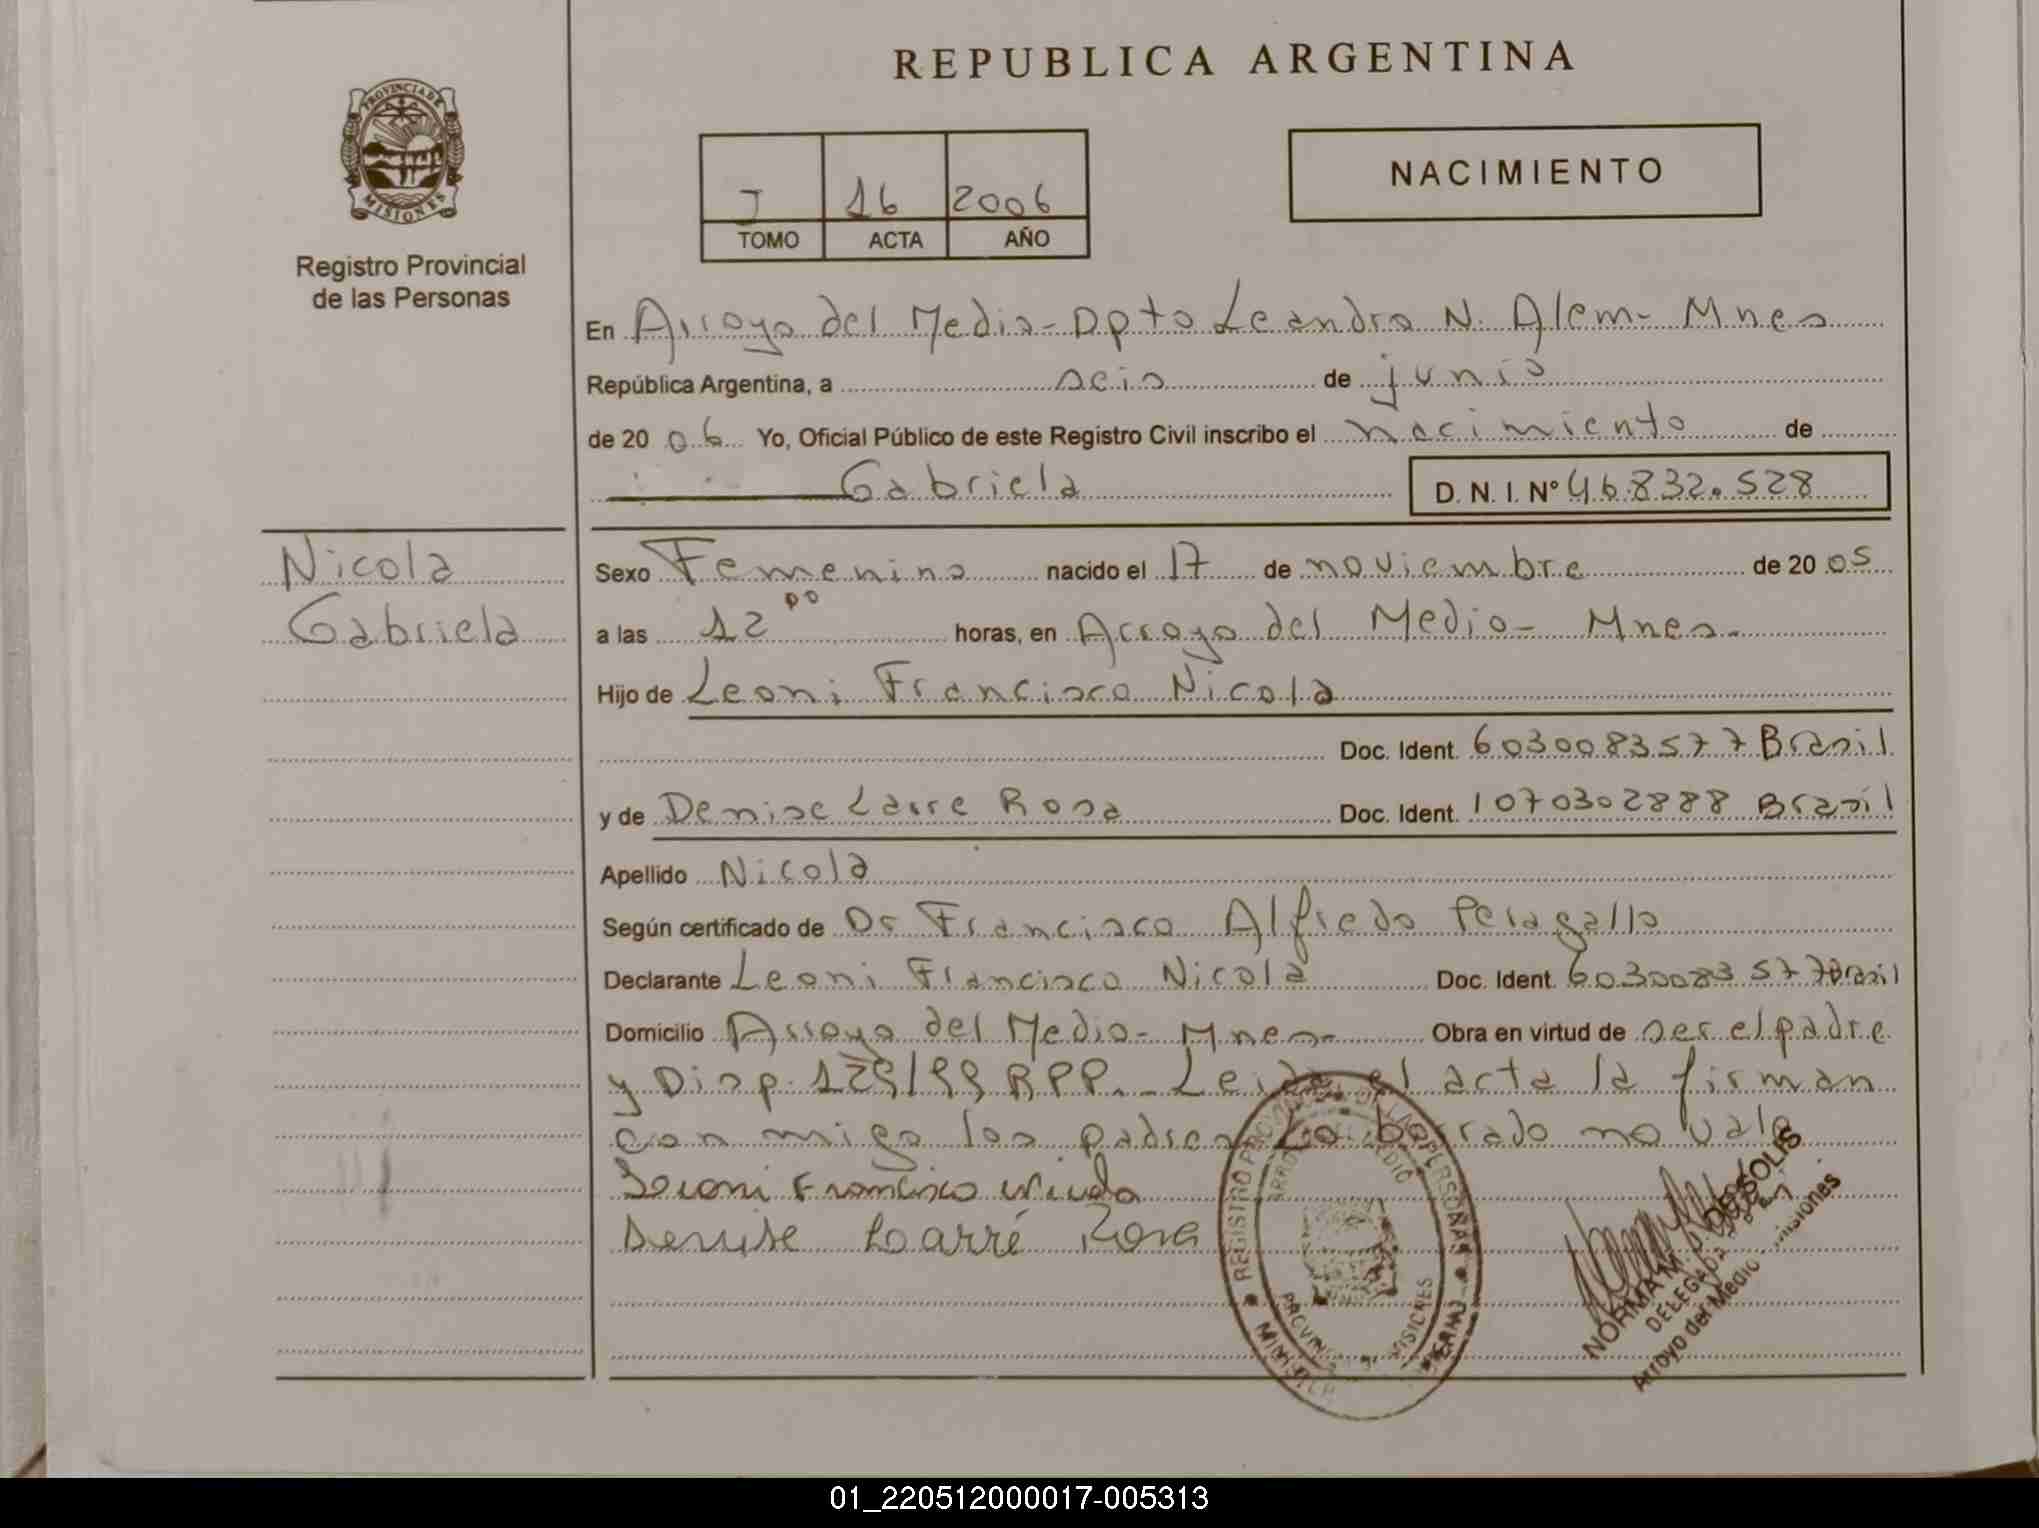 REPUBLICA ARGENTINA
PROVINCIA DE
MISIONES
Registro Provincial
de las Personas
I 16 2006
TOMO ACTA AÑO
NACIMIENTO
En Arroyo del Medio - Dpto Leandro N. Alem - Mnes
República Argentina, a seis de junio
de 20 06 Yo, Oficial Público de este Registro Civil inscribo el nacimiento de
Gabriela D. N. I. Nº 46.832.528
Nicola
Gabriela
Sexo Femenino nacido el 17 de noviembre de 20 05
a las 12 00 horas, en Arroyo del Medio - Mnes.
Hijo de Leoni Francisco Nicola
Doc. Ident. 6030083577 Brasil
y de Denise Larre Rosa Doc. Ident. 1070302888 Brasil
Apellido Nicola
Según certificado de Dr Francisco Alfredo Peragallo
Declarante Leoni Francisco Nicola Doc. Ident. 6030083577 Brasil
Domicilio Arroyo del Medio - Mnes - Obra en virtud de ser el padre
y Disp. 129/99 RPP. - Leida el acta la firman
con migo los padres Lo borrado no vale
Leoni Francisco Nicola
Denise Larré Rosa
REGISTRO PROVINCIAL DE LAS PERSONAS
NORMA M. DESOLIS
DELEGADA
Arroyo del Medio - Misiones
01_220512000017-005313